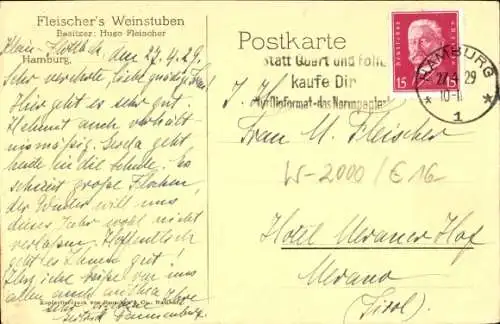 Fleischer's Weinstuben
Besitzer: Hugo Fleischer
Hamburg.
Klein-Flottbek den 27.4.29.
Sehr verehrte, liebe gnädige Frau!
Hier geht es sehr gut.
Helmut auch verhält-
nismäßig. geht
heute in die Schule. Es
schneit große Flocken,
der Winter will uns
dieses Jahr wohl nicht
verlassen. Hoffentlich
geht es Ihnen gut!
Herzliche Grüße von uns
allen auch
Ihre
Postkarte
Statt Quart und Folio
kaufe Dir
Dinformat-das Normpapier
Deutsches Reich
15 15
HAMBURG
27.4.29
10-11
* 1 *
Frau M. Fleischer
W-2000/€16
Hotel Meraner Hof
Merano
(Tirol)